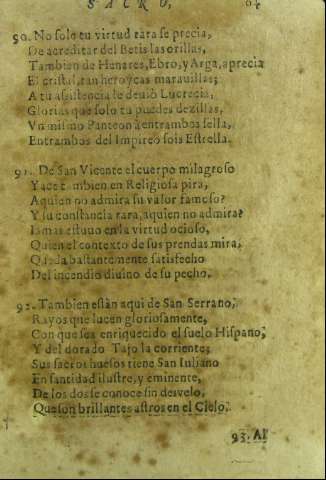 SACRO, 64
90. No solo tu virtud rara se precia,
De acreditar del Betis las orillas,
Tambien de Henares, Ebro, y Arga, aprecia
El cristal, tan heroycas marauillas;
A tu assistencia se deuiò Lucrecia,
Glorias que solo tu puedes dezillas,
Vn mismo Panteon à entrambos sella,
Entrambos del Impireo sois Estrella.
91. De San Vicente el cuerpo milagroso
Yace tambien en Religiosa pira,
A quien no admira su valor famoso?
Y su constancia rara, aquien no admira?
Iamas estuuo en la virtud ocioso,
Quien el contexto de sus prendas mira,
Queda bastantemente satisfecho
Del incendio diuino de su pecho.
92. Tambien estàn aqui de San Serrano,
Rayos que lucen gloriosamente,
Con que se vè enriquecido el suelo Hispano,
Y del dorado Tajo la corriente;
Sus sacros huesos tiene San Iuliano
En santidad ilustre, y eminente,
De los dos se conoce sin desvelo,
Que son brillantes astros en el Cielo.
93. Al